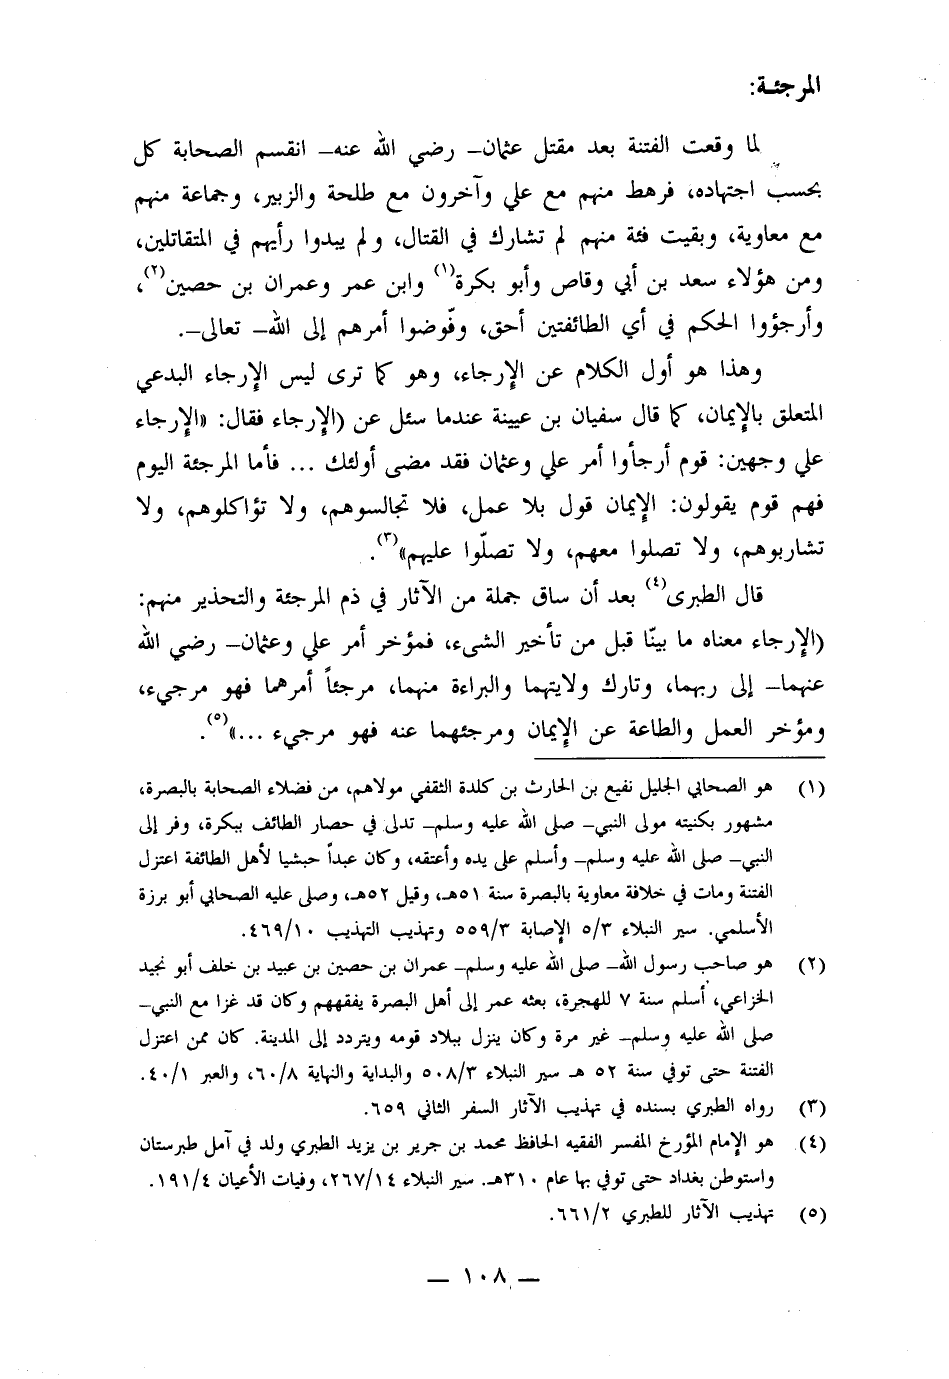 المرجئة:
لما وقعت الفتنة بعد مقتل عثمان– رضي الله عنه– انقسم الصحابة كل
بحسب اجتهاده، فرهط منهم مع علي وآخرون مع طلحة والزبير، وجماعة منهم
مع معاوية، وبقيت فئة منهم لم تشارك في القتال، ولم يبدوا رأيهم في المتقاتلين،
ومن هؤلاء سعد بن أبي وقاص وأبو بكرة(١) وابن عمر وعمران بن حصين(٢)،
وأرجؤوا الحكم في أي الطائفتين أحق، وفّوضوا أمرهم إلى الله– تعالى–.
وهذا هو أول الكلام عن الإرجاء، وهو كما ترى ليس الإرجاء البدعي
المتعلق بالإيمان، كما قال سفيان بن عيينة عندما سئل عن (الإرجاء فقال: «الإرجاء
علي وجهين: قوم أرجأوا أمر علي وعثمان فقد مضى أولئك ... فأما المرجئة اليوم
فهم قوم يقولون: الإيمان قول بلا عمل، فلا تجالسوهم، ولا تؤاكلوهم، ولا
تشاربوهم، ولا تصلوا معهم، ولا تصلّوا عليهم»(٣).
قال الطبرى(٤) بعد أن ساق جملة من الآثار في ذم المرجئة والتحذير منهم:
(الإرجاء معناه ما بينّا قبل من تأخير الشىء، فمؤخر أمر علي وعثمان– رضي الله
عنهما– إلى ربهما، وتارك ولايتهما والبراءة منهما، مرجئاً أمرهما فهو مرجيء،
ومؤخر العمل والطاعة عن الإيمان ومرجئهما عنه فهو مرجيء ...»(٥).
(١) هو الصحابي الجليل نفيع بن الحارث بن كلدة الثقفي مولاهم، من فضلاء الصحابة بالبصرة،
مشهور بكنيته مولى النبي– صلى الله عليه وسلم– تدلى في حصار الطائف ببكرة، وفر إلى
النبي– صلى الله عليه وسلم– وأسلم على يده وأعتقه، وكان عبداً حبشيا لأهل الطائفة اعتزل
الفتنة ومات في خلافة معاوية بالبصرة سنة ٥١هـ، وقيل ٥٢هـ، وصلى عليه الصحابي أبو برزة
الأسلمي. سير النبلاء ٥/٣ الإصابة ٥٥٩/٣ وتهذيب التهذيب ٤٦٩/١٠.
(٢) هو صاحب رسول الله– صلى الله عليه وسلم– عمران بن حصين بن عبيد بن خلف أبو نجيد
الخزاعي، أسلم سنة ٧ للهجرة، بعثه عمر إلى أهل البصرة يفقههم وكان قد غزا مع النبي–
صلى الله عليه وسلم– غير مرة وكان ينزل ببلاد قومه ويتردد إلى المدينة. كان ممن اعتزل
الفتنة حتى توفي سنة ٥٢ هـ سير النبلاء ٥٠٨/٣ والبداية والنهاية ٦٠/٨، والعبر ٤٠/١.
(٣) رواه الطبري بسنده في تهذيب الآثار السفر الثاني ٦٥٩.
(٤) هو الإمام المؤرخ المفسر الفقيه الحافظ محمد بن جرير بن يزيد الطبري ولد في آمل طبرستان
واستوطن بغداد حتى توفي بها عام ٣١٠هـ. سير النبلاء ٢٦٧/١٤، وفيات الأعيان ١٩١/٤.
(٥) تهذيب الآثار للطبري ٦٦١/٢.
– ١٠٨ –